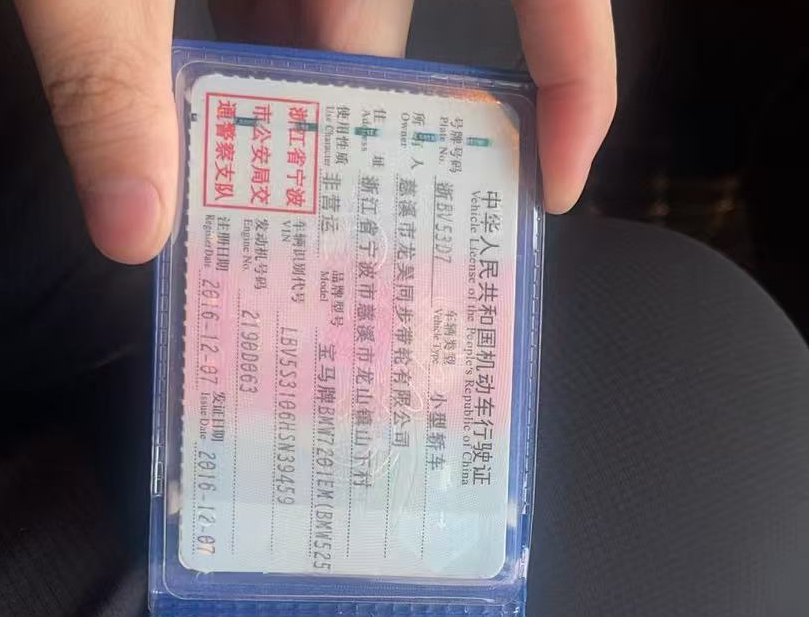 中华人民共和国机动车行驶证
Vehicle License of the People's Republic of China
号牌号码 浙BV53D7 车辆类型 小型轿车
Plate No. Vehicle Type
所有人 慈溪市龙昊同步带轮有限公司
Owner
住址 浙江省宁波市慈溪市龙山镇山下村
Address
使用性质 非营运 品牌型号 宝马牌BMW7201EM(BMW525
Use Character Model
浙江省宁波
市公安局交
通警察支队
车辆识别代号 LBV5S3106HSN39459
VIN
发动机号码 2190D063
Engine No.
注册日期 2016-12-07 发证日期 2016-12-07
Register Date Issue Date